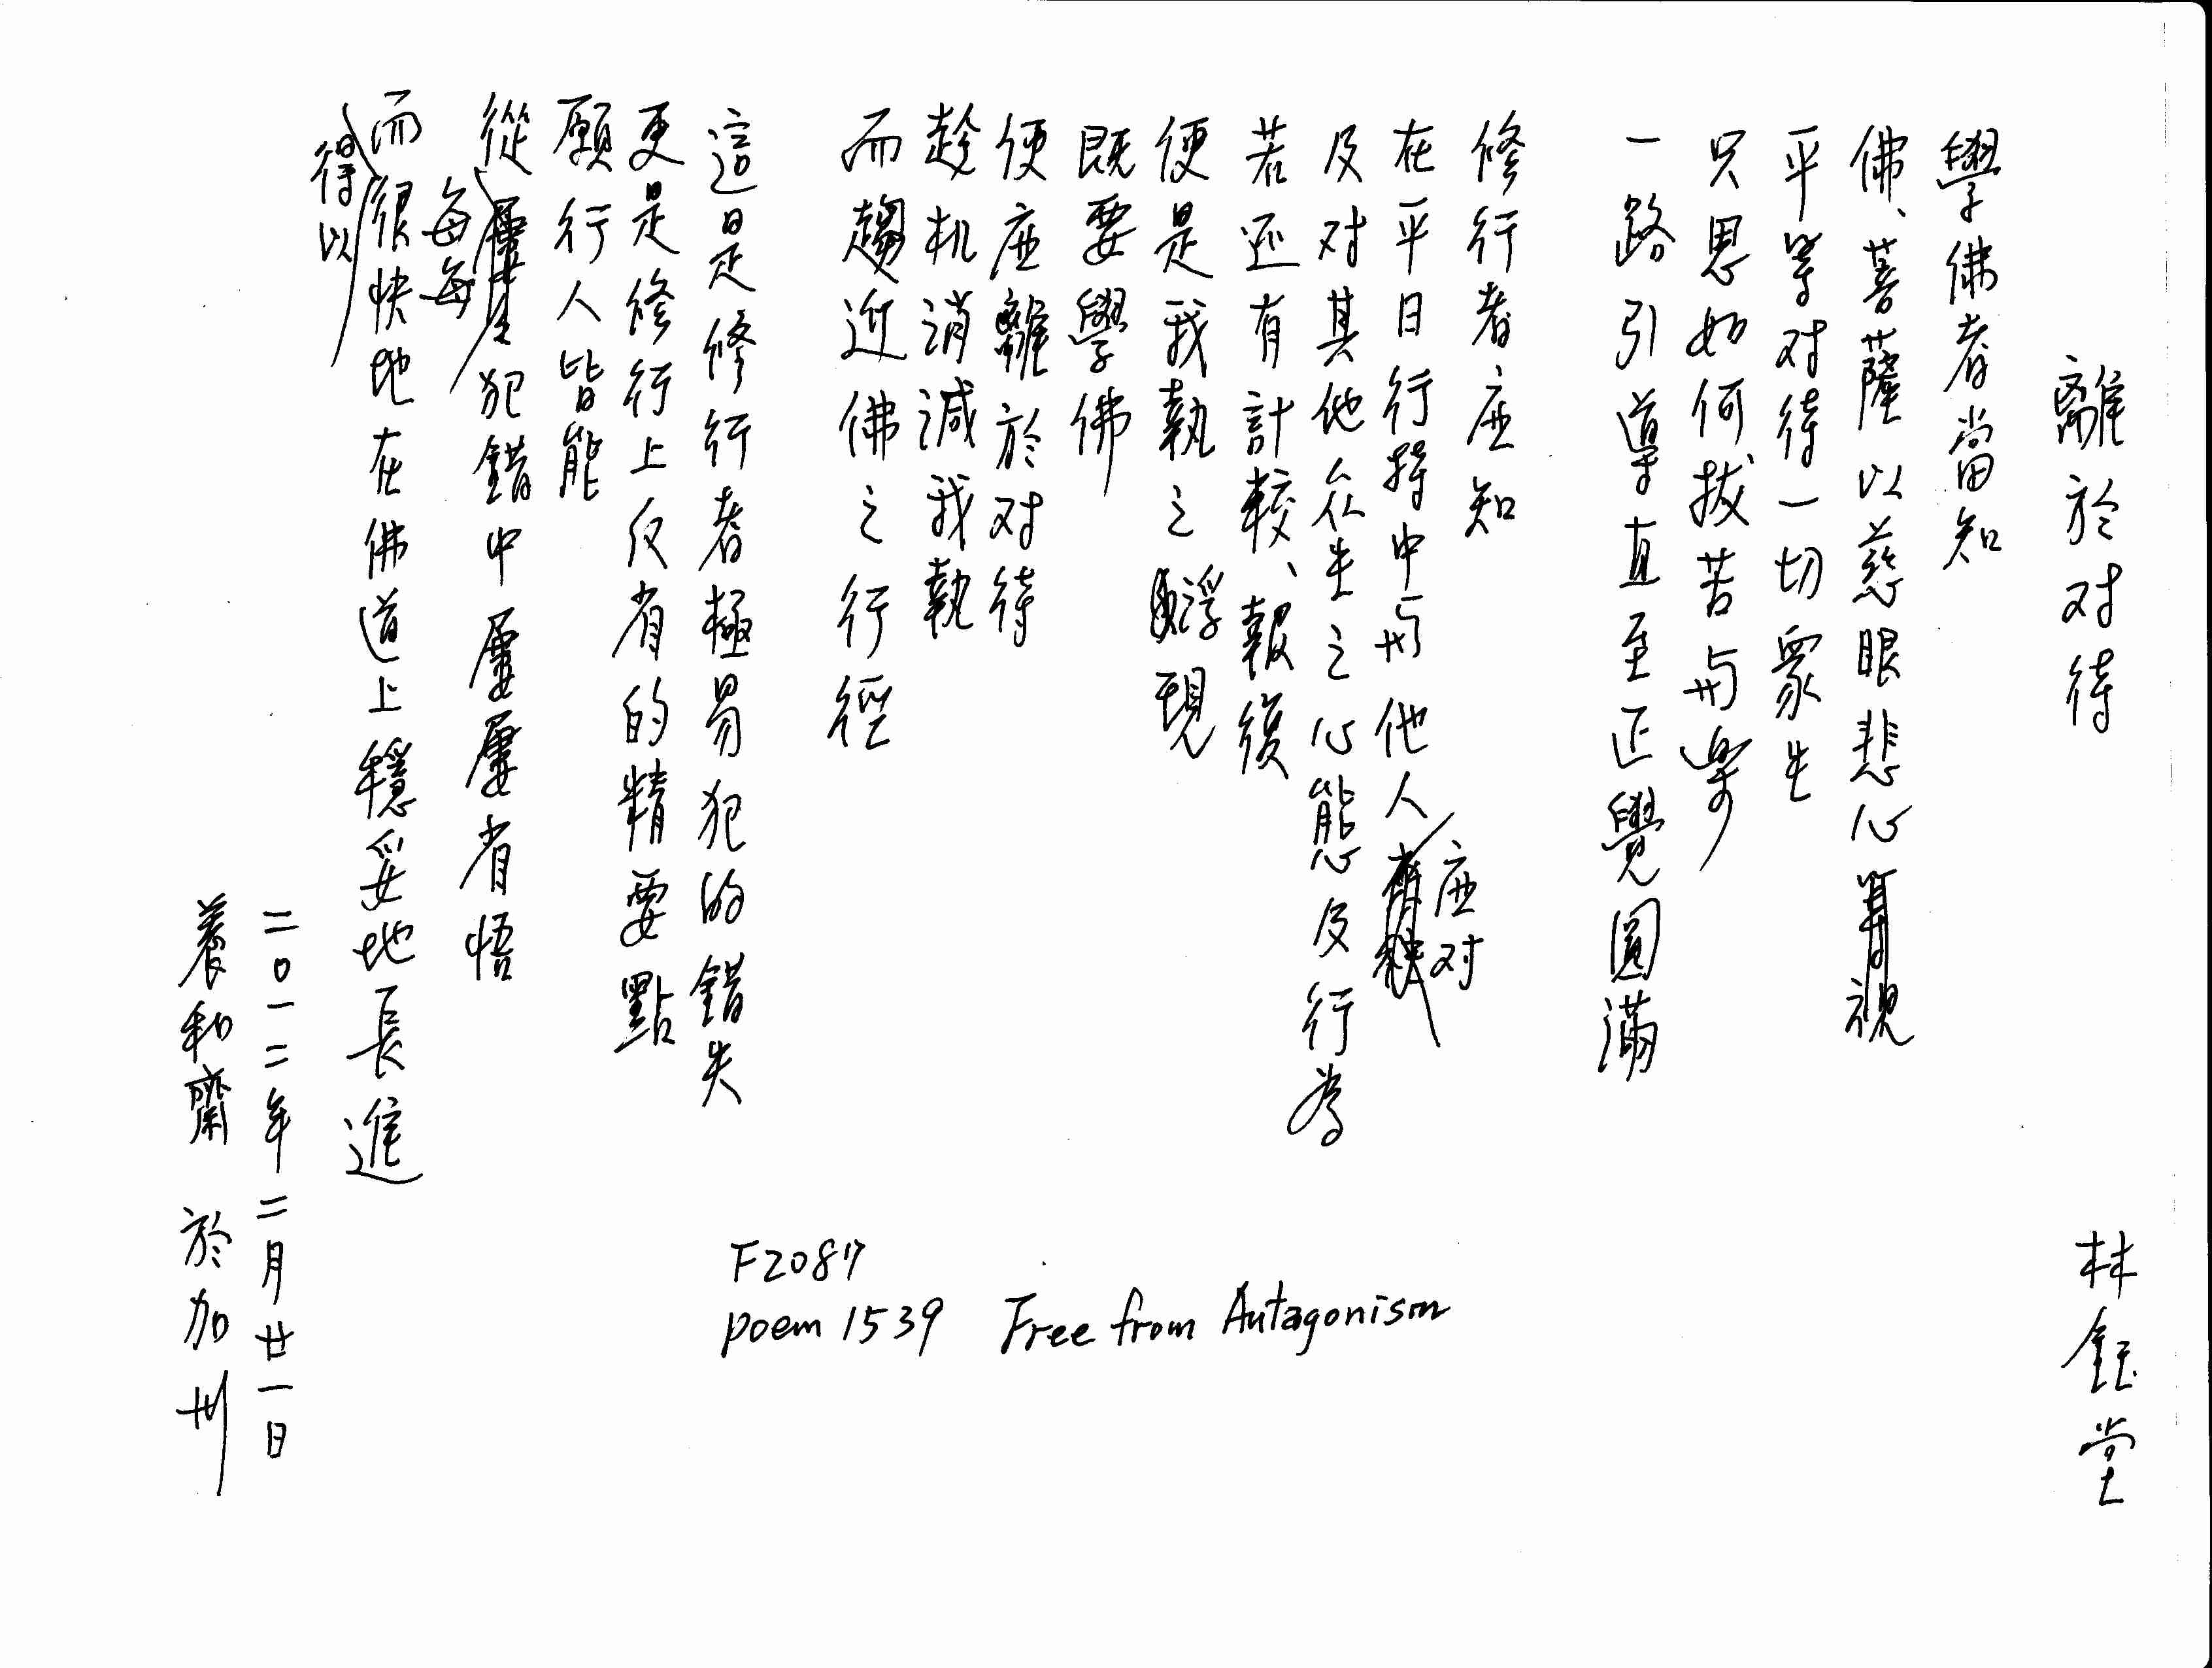 離於对待
林鈺堂
學佛者當知
佛、菩薩以慈眼悲心視
平等对待一切眾生
只思如何拔苦与樂
一路引導直至正覺圓滿
修行者应知
在平日行持中与他人应对
及对其他众生之心態及行為
若还有計較、報復
便是我執之浮現
既要學佛
便应離於对待
趁机消減我執
而趨近佛之行徑
這是修行者極易犯的錯失
更是修行上反省的精要點
願行人皆能
從每每犯錯中屢屢省悟
而得以很快地在佛道上穩妥地長進
二〇一二年二月廿一日
養和齋 於加州
F2087
poem 1539 Free from Antagonism